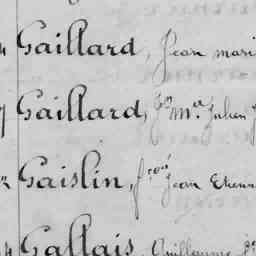 Gaillard, Jean mari
Gaillard, Jn Ma Julien J
Gaislin, frois Jean Etienn
Gallais, Guillaume